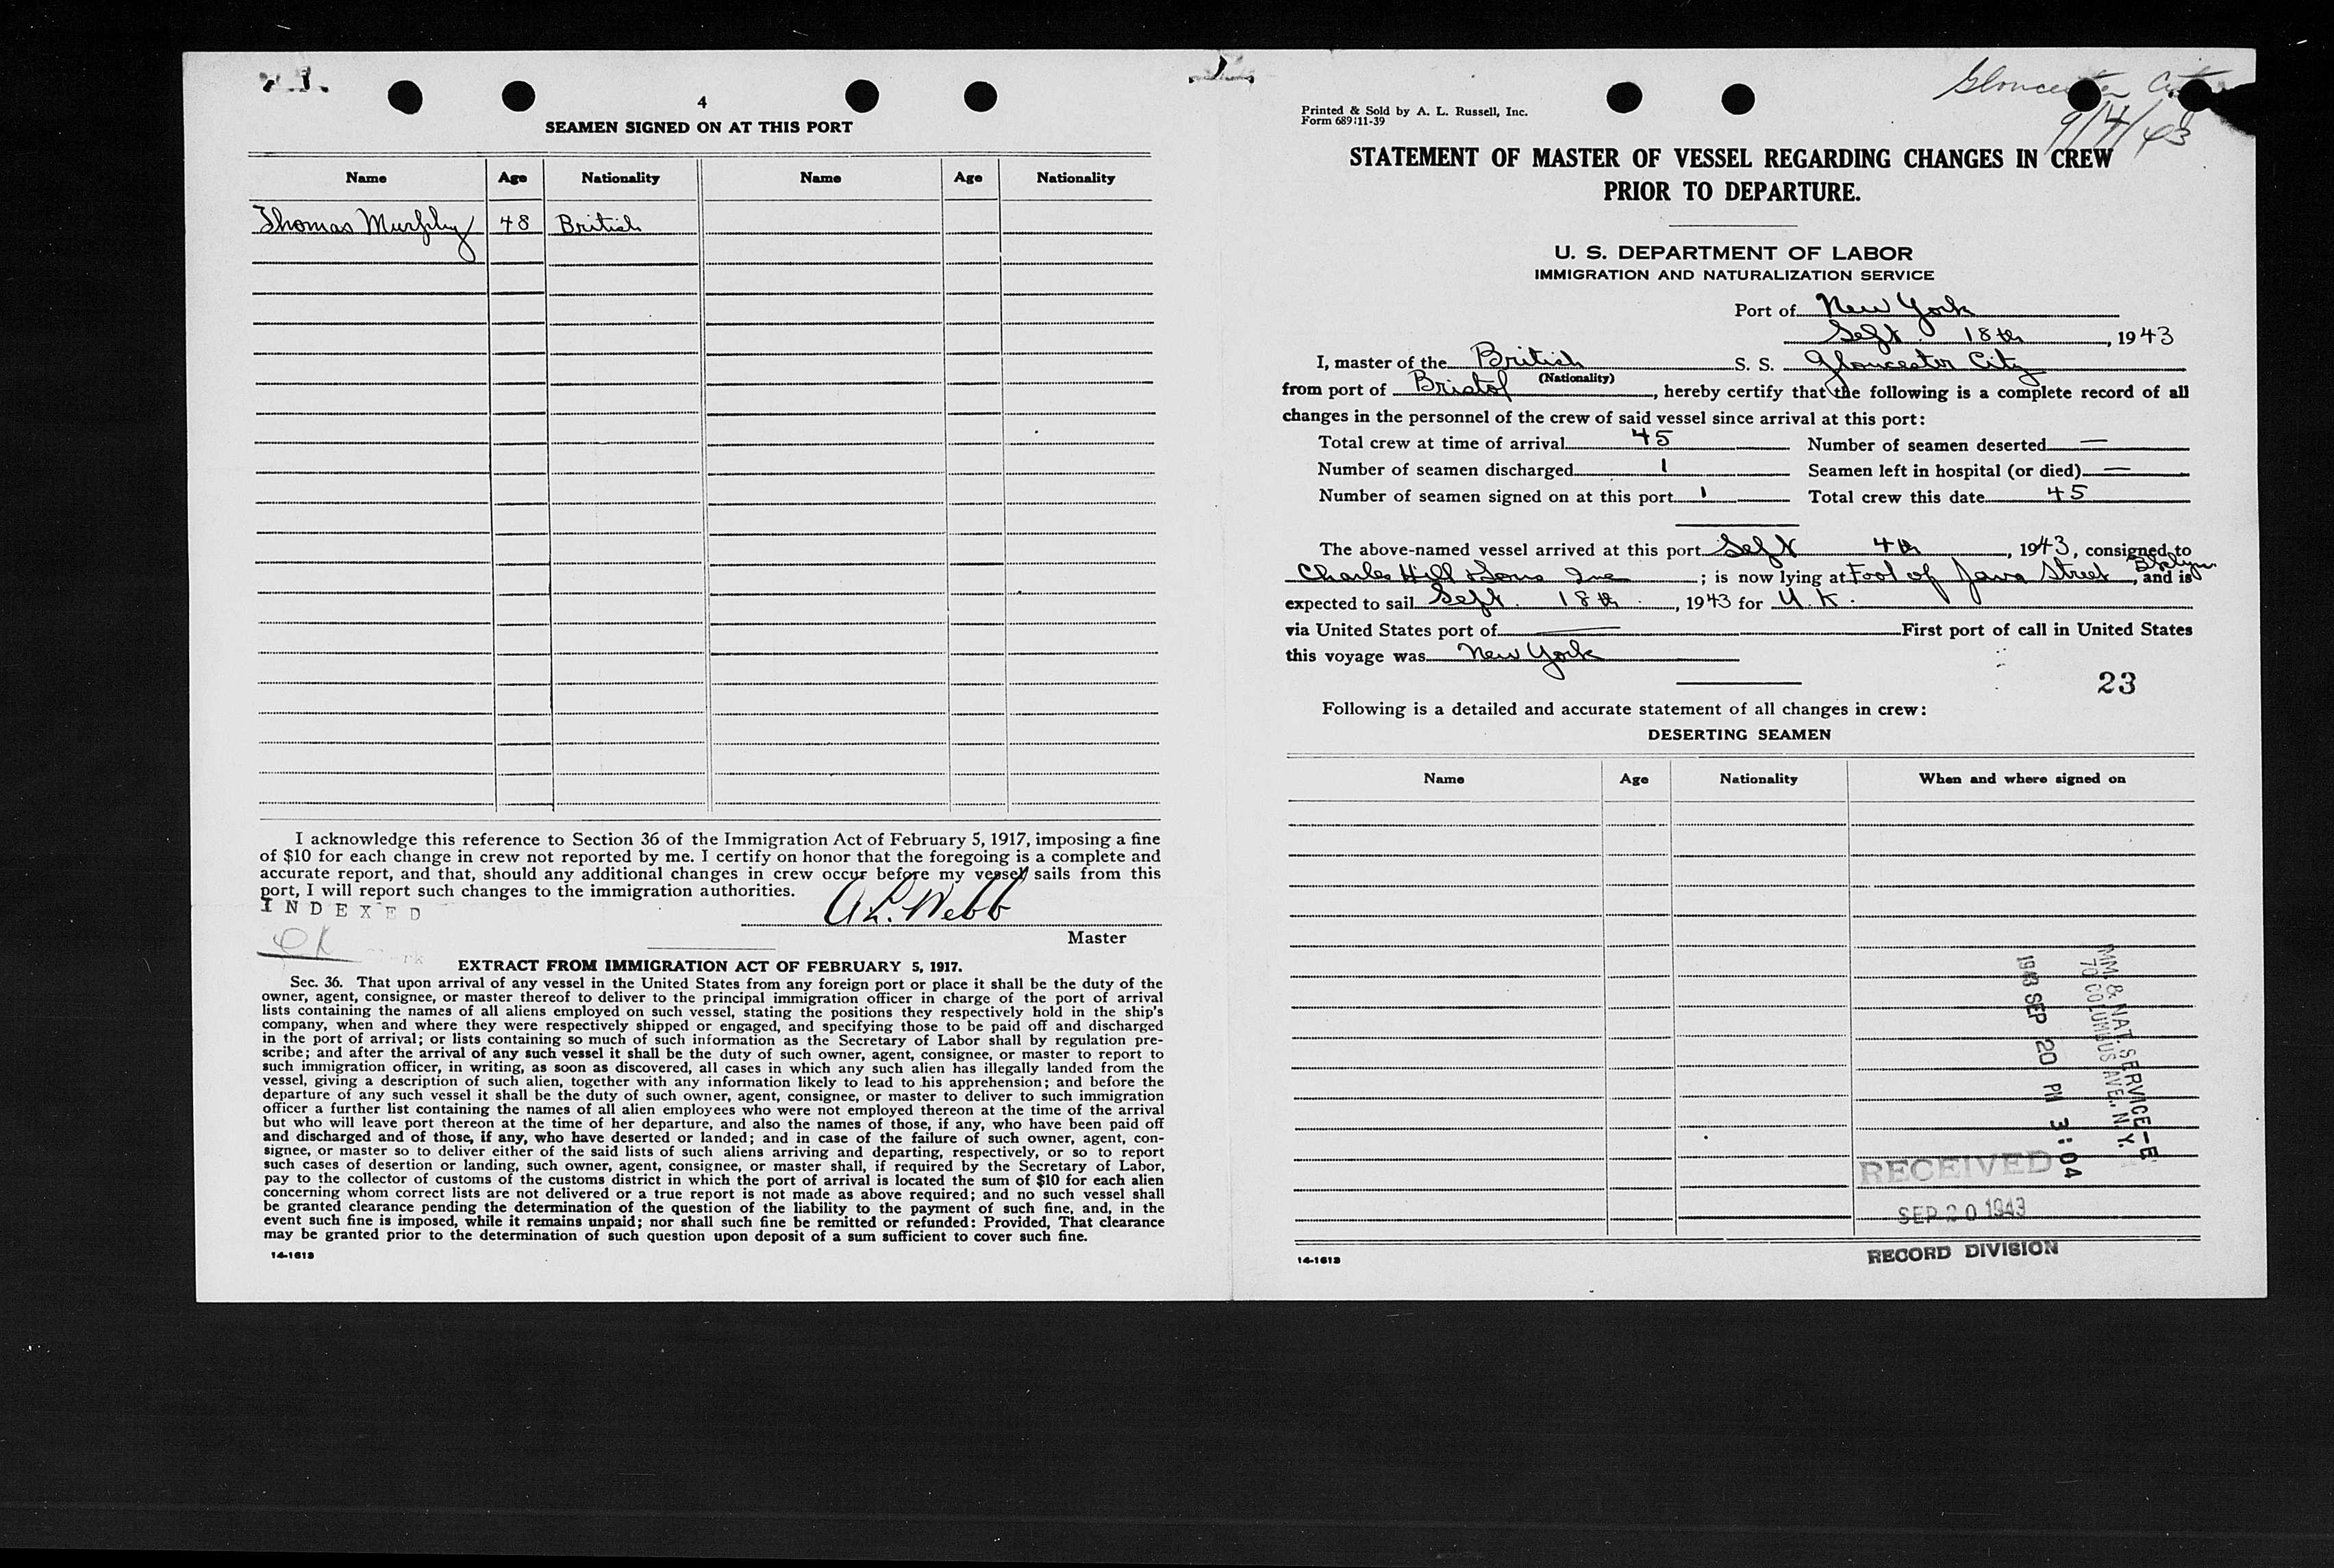 4
SEAMEN SIGNED ON AT THIS PORT
Name Age Nationality Name Age Nationality
Thomas Murphy 48 British
I acknowledge this reference to Section 36 of the Immigration Act of February 5, 1917, imposing a fine
of $10 for each change in crew not reported by me. I certify on honor that the foregoing is a complete and
accurate report, and that, should any additional changes in crew occur before my vessel sails from this
port, I will report such changes to the immigration authorities.
INDEXED
A L. Webb
OK
Master
EXTRACT FROM IMMIGRATION ACT OF FEBRUARY 5, 1917.
Sec. 36. That upon arrival of any vessel in the United States from any foreign port or place it shall be the duty of the
owner, agent, consignee, or master thereof to deliver to the principal immigration officer in charge of the port of arrival
lists containing the names of all aliens employed on such vessel, stating the positions they respectively hold in the ship's
company, when and where they were respectively shipped or engaged, and specifying those to be paid off and discharged
in the port of arrival; or lists containing so much of such information as the Secretary of Labor shall by regulation pre-
scribe; and after the arrival of any such vessel it shall be the duty of such owner, agent, consignee, or master to report to
such immigration officer, in writing, as soon as discovered, all cases in which any such alien has illegally landed from the
vessel, giving a description of such alien, together with any information likely to lead to his apprehension; and before the
departure of any such vessel it shall be the duty of such owner, agent, consignee, or master to deliver to such immigration
officer a further list containing the names of all alien employees who were not employed thereon at the time of the arrival
but who will leave port thereon at the time of her departure, and also the names of those, if any, who have been paid off
and discharged and of those, if any, who have deserted or landed; and in case of the failure of such owner, agent, con-
signee, or master so to deliver either of the said lists of such aliens arriving and departing, respectively, or so to report
such cases of desertion or landing, such owner, agent, consignee, or master shall, if required by the Secretary of Labor,
pay to the collector of customs of the customs district in which the port of arrival is located the sum of $10 for each alien
concerning whom correct lists are not delivered or a true report is not made as above required; and no such vessel shall
be granted clearance pending the determination of the question of the liability to the payment of such fine, and, in the
event such fine is imposed, while it remains unpaid; nor shall such fine be remitted or refunded: Provided, That clearance
may be granted prior to the determination of such question upon deposit of a sum sufficient to cover such fine.
14-1613
Gloucester City
9/4/43
Printed & Sold by A. L. Russell, Inc.
Form 689:11-39
STATEMENT OF MASTER OF VESSEL REGARDING CHANGES IN CREW
PRIOR TO DEPARTURE.
U. S. DEPARTMENT OF LABOR
IMMIGRATION AND NATURALIZATION SERVICE
Port of New York
Sept. 18th, 1943
I, master of the British S. S. Gloucester City
(Nationality)
from port of Bristol, hereby certify that the following is a complete record of all
changes in the personnel of the crew of said vessel since arrival at this port:
Total crew at time of arrival 45 Number of seamen deserted —
Number of seamen discharged 1 Seamen left in hospital (or died) —
Number of seamen signed on at this port 1 Total crew this date 45
The above-named vessel arrived at this port Sept 4th, 1943, consigned to
Charles Hill & Sons Inc; is now lying at Foot of Java Street Bklyn, and is
expected to sail Sept. 18th, 1943 for U.K.
via United States port of — First port of call in United States
this voyage was New York
23
Following is a detailed and accurate statement of all changes in crew:
DESERTING SEAMEN
Name Age Nationality When and where signed on
MM & NAT. SERVICE-E
70 COLUMBUS AVE., N.Y.
1943 SEP 20 PM 3:04
RECEIVED
SEP 20 1943
RECORD DIVISION
14-1613